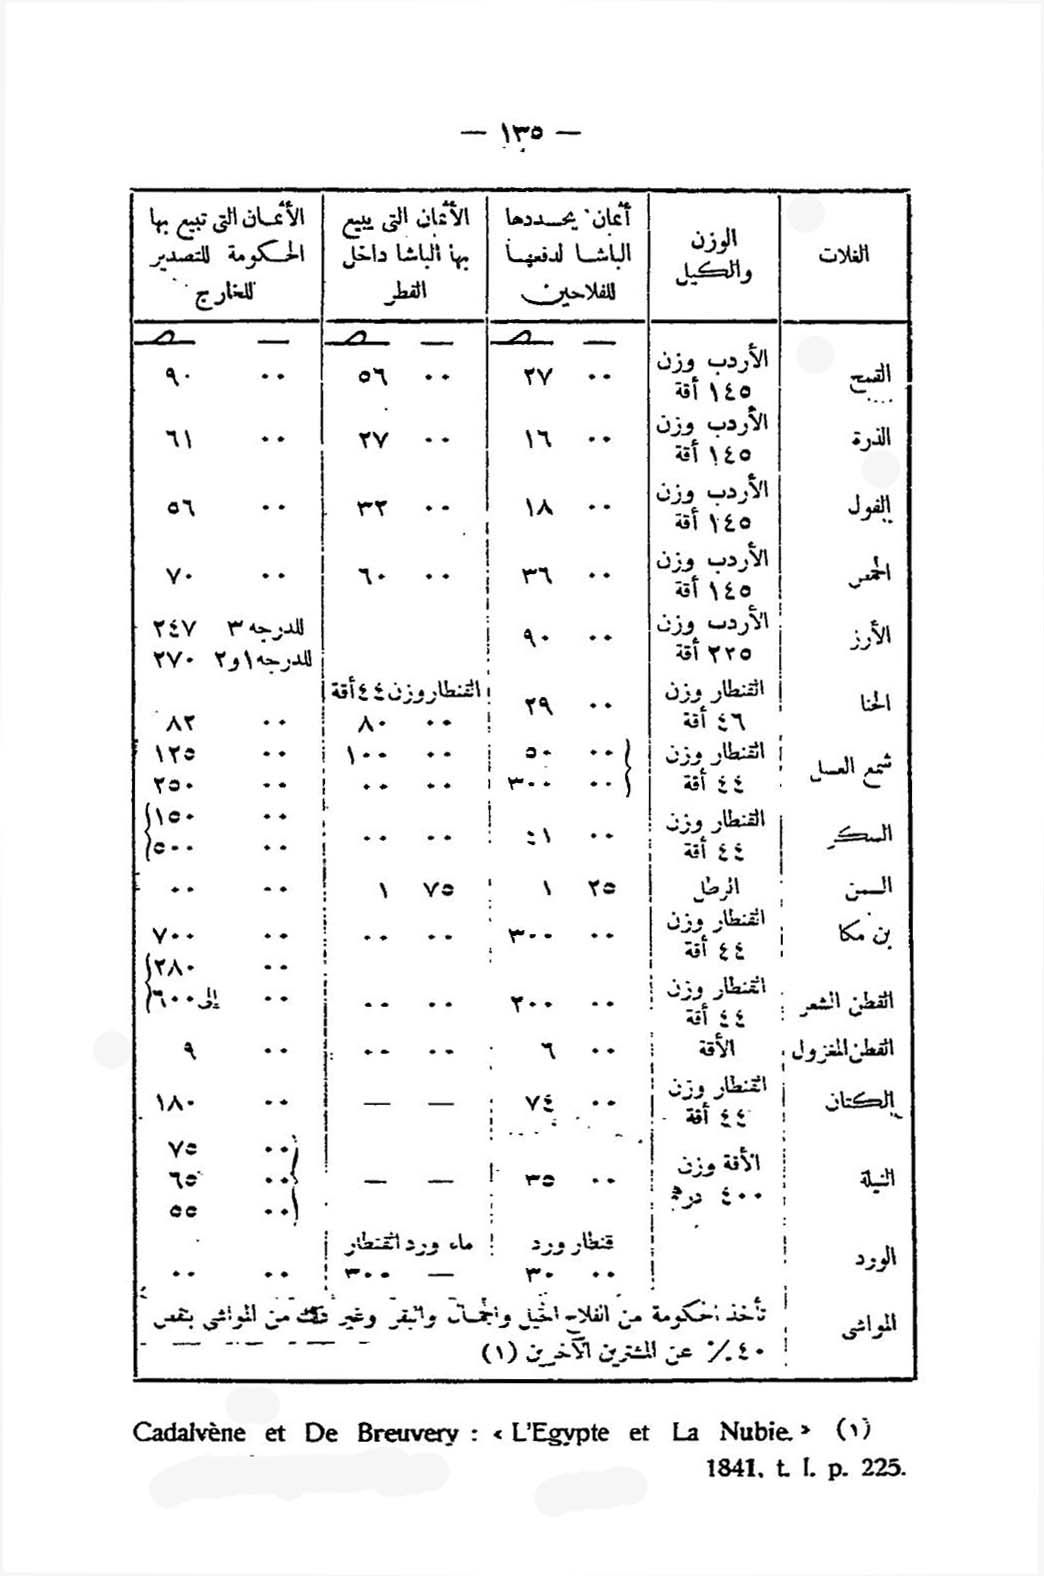 — ١٣٥ —
الغلات | الوزن والكيل | أثمان يحددها الباشا لدفعها للفلاحين | الأثمان التى يبيع بها الباشا داخل القطر | الأثمان التى تبيع بها الحكومة للتصدير للخارج
القمح | الأردب وزن ١٤٥ أقة | ٠٠ ٢٧ | ٠٠ ٥٦ | ٠٠ ٩٠
الذرة | الأردب وزن ١٤٥ أقة | ٠٠ ١٦ | ٠٠ ٢٧ | ٠٠ ٦١
الفول | الأردب وزن ١٤٥ أقة | ٠٠ ١٨ | ٠٠ ٣٢ | ٠٠ ٥٦
الحمص | الأردب وزن ١٤٥ أقة | ٠٠ ٣٦ | ٠٠ ٦٠ | ٠٠ ٧٠
الأرز | الأردب وزن ٢٢٥ أقة | ٠٠ ٩٠ | | للدرجه ٣ ٢٤٧
للدرجه ١و٢ ٢٧٠
الحنا | القنطار وزن ٤٦ أقة | ٠٠ ٢٩ | القنطار وزن ٤٤ أقة ٠٠ ٨٠ | ٠٠ ٨٢
شمع العسل | القنطار وزن ٤٤ أقة | ٠٠ ٥٠ | ٠٠ ١٠٠ | ٠٠ ١٢٥
٠٠ ٣٠٠ | ٠٠ ٠٠ | ٠٠ ٢٥٠
السكر | القنطار وزن ٤٤ أقة | ٠٠ | ٠٠ ٠٠ | ٠٠ ١٥٠
٠٠ ٥٠٠
السمن | الرطل | ٢٥ ١ | ٧٥ ١ | ٠٠ ٠٠
بن مكا | القنطار وزن ٤٤ أقة | ٠٠ ٣٠٠ | ٠٠ ٠٠ | ٠٠ ٧٠٠
القطن الشعر | القنطار وزن ٤٤ أقة | ٠٠ ٢٠٠ | ٠٠ ٠٠ | ٠٠ ٢٨٠
٠٠ إلى ٦٠٠
القطن المغزول | الأقة | ٠٠ ٦ | ٠٠ ٠٠ | ٠٠ ٩
الكتان | القنطار وزن ٤٤ أقة | ٠٠ ٧٤ | — — | ٠٠ ١٨٠
النيلة | الأقة وزن ٤٠٠ درهم | ٠٠ ٣٥ | — — | ٠٠ ٧٥
٠٠ ٦٥
٠٠ ٥٥
الورد | | قنطار ورد ٠٠ ٣٠ | ماء ورد القنطار — ٣٠٠ | ٠٠ ٠٠
المواشى | تأخذ الحكومة من الفلاح الخيل والجمال والبقر وغير ذلك من المواشي بنقص
٤٠ ٪ عن المشترين الآخرين (١)
(١) Cadalvène et De Breuvery : « L'Egypte et La Nubie. »
1841, t. I. p. 225.